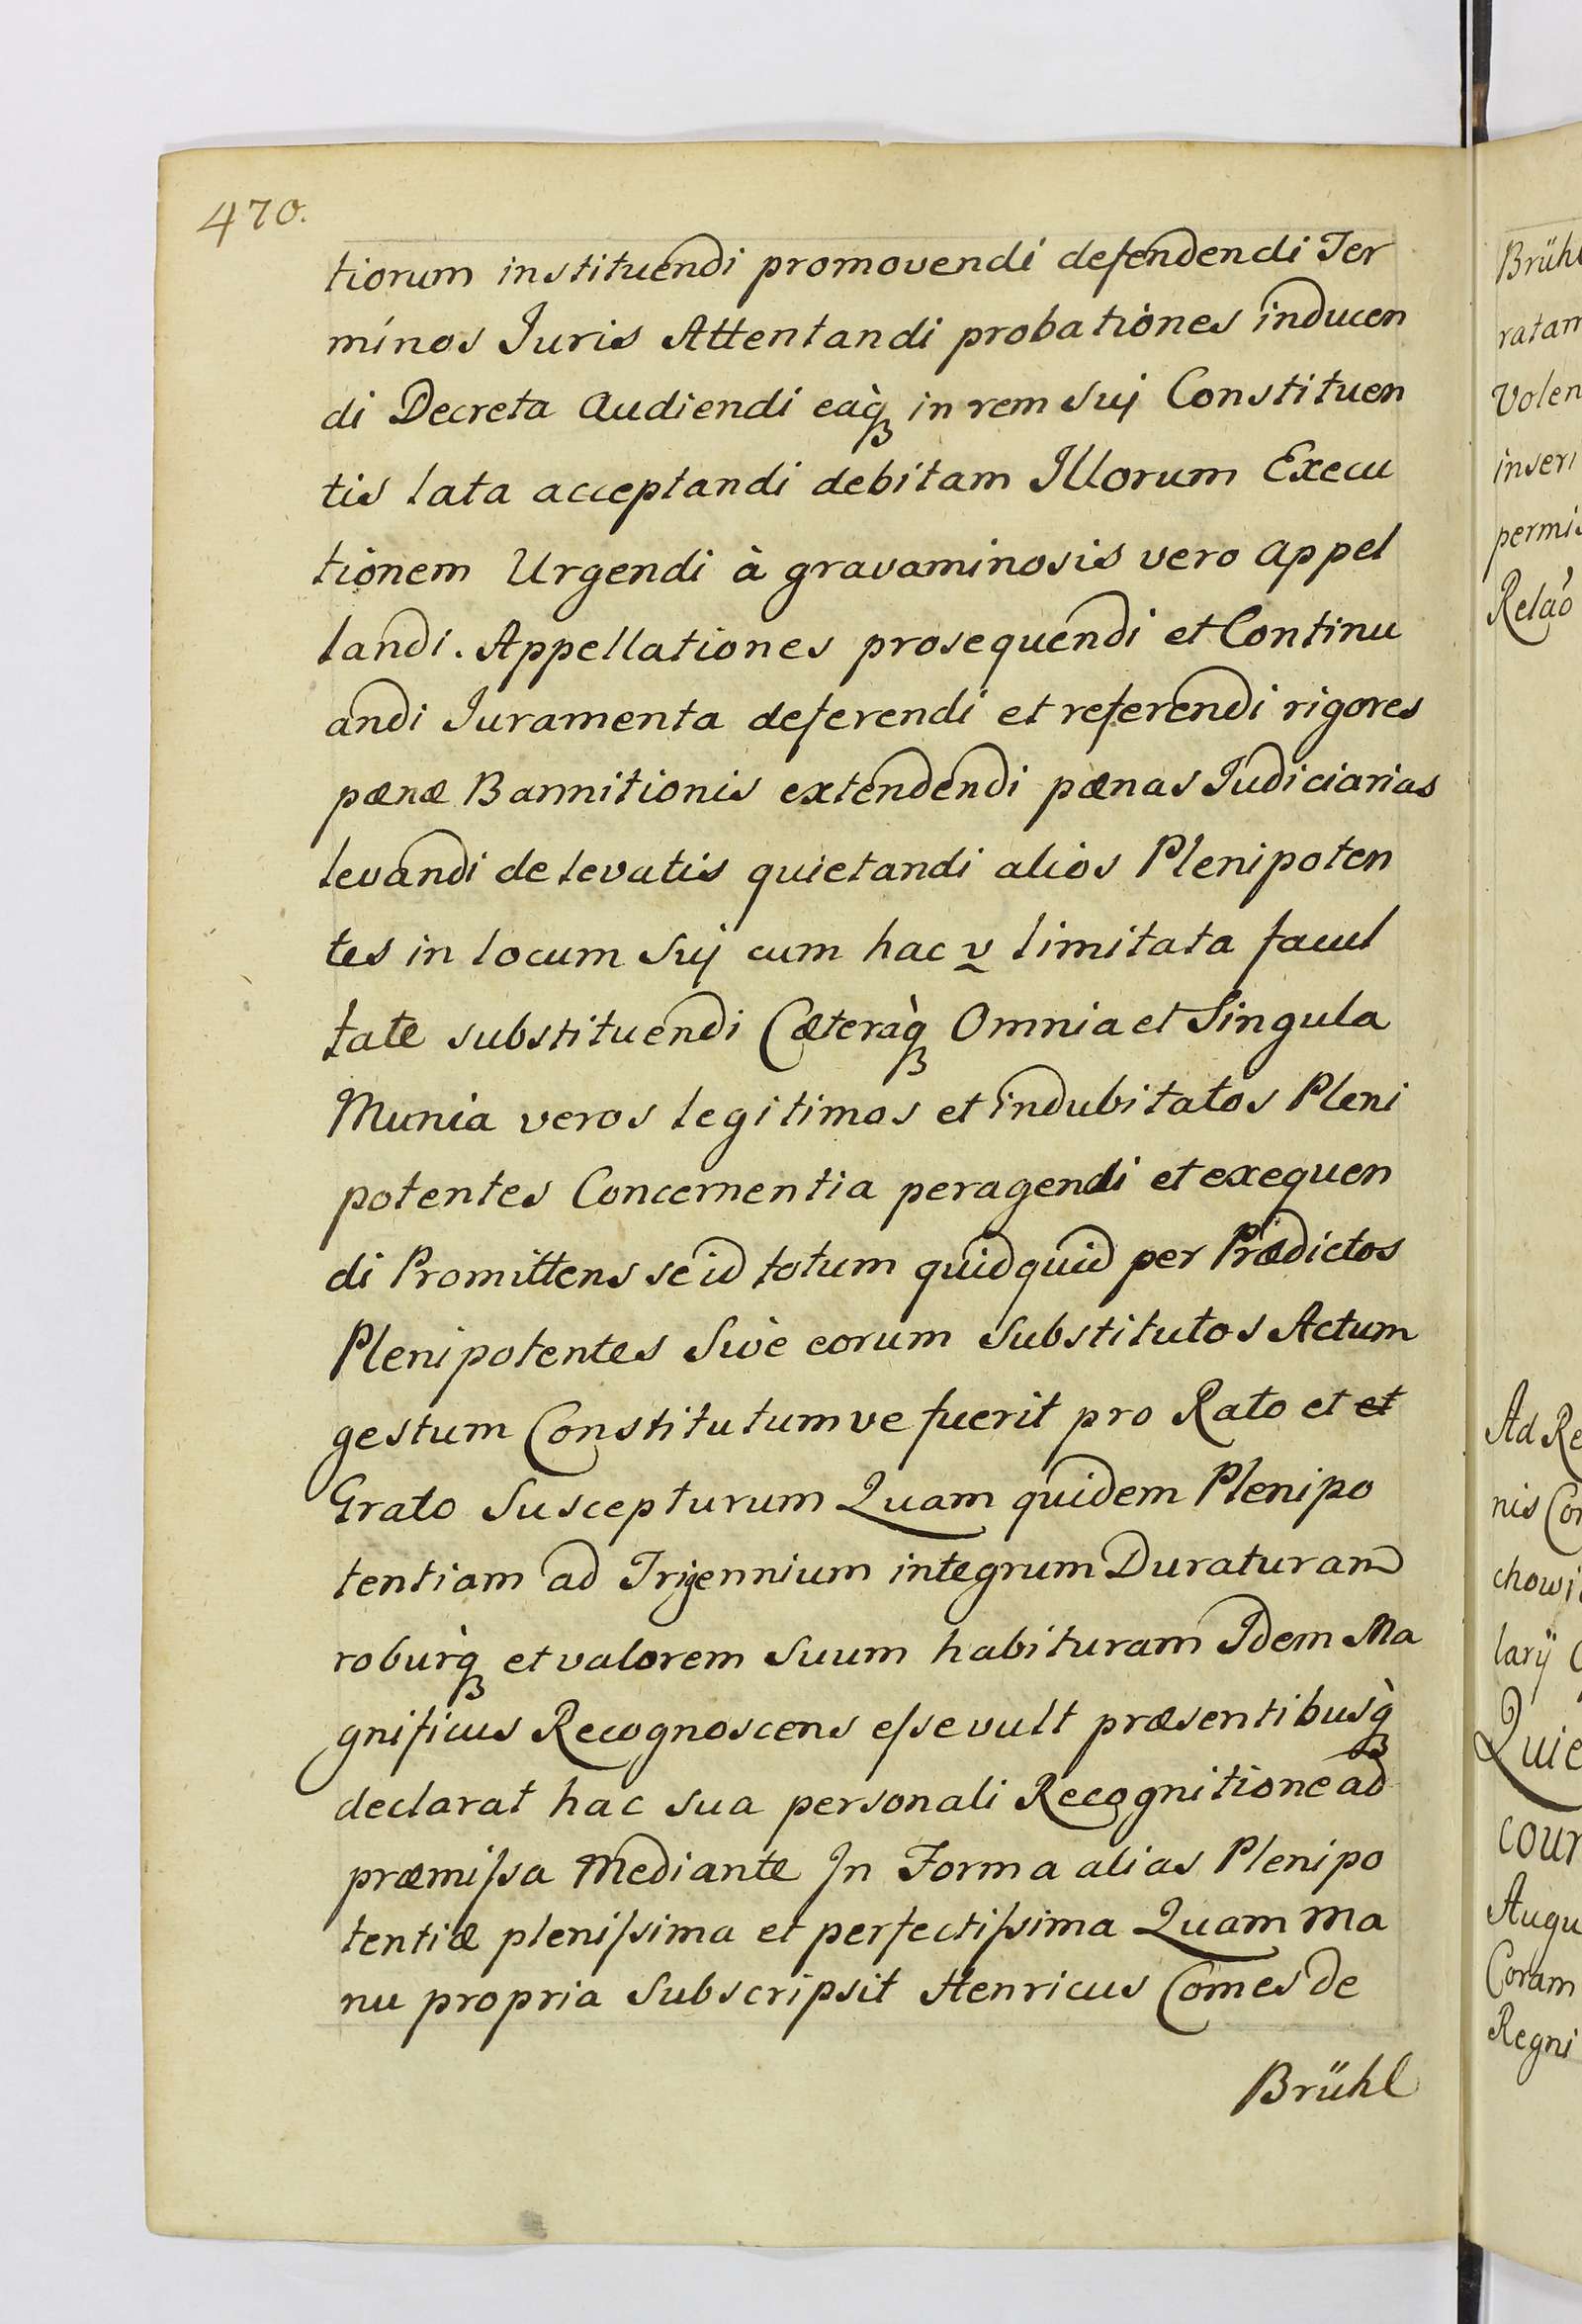 470.
tiorum instituendi promovendi defendendi Ter
minos Juris Attentandi probationes inducen
di Decreta Audiendi eaq̀ꝫ in rem Suj Constituen
tis lata acceptandi debitam Illorum Execu
tionem Urgendi à gravaminosis vero appel
landi. Appellationes prosequendi et Continu
andi Juramenta deferendi et referendi rigores
pænæ Bannitionis extendendi pænas Judiciarias
levandi de levatis quietandi alios Plenipoten
tes in locum Suj cum hac v limitata facul
tate substituendi Cæteraq̀ꝫ Omnia et Singula
Munia veros legitimos et indubitatos Pleni
potentes Concernentia peragendi et exequen
di Promittens se id totum quidquid per Prædictos
Plenipotentes Sivè eorum Substitutos Actum
gestum Constitutumve fuerit pro Rato et et
Grato Suscepturum Quam quidem Plenipo
tentiam ad Trijennium integrum Duraturam
roburq̀ꝫ et valorem Suum habituram Idem Ma
gnificus Recognoscens eſse vult præsentibusq̀ꝫ
declarat hac sua personali Recognitione ad
præmiſsa Mediante In Forma alias Plenipo
tentiæ pleniſsima et perfectiſsima Quam Ma
nu propria Subscripsit Henricus Comes de
Brühl
Brühl
ratam
Volen
inseri
permis
Relaõ
Ad Re
nis Con
chowi
larÿ
Quie
cour
Augu
Coram
Regni